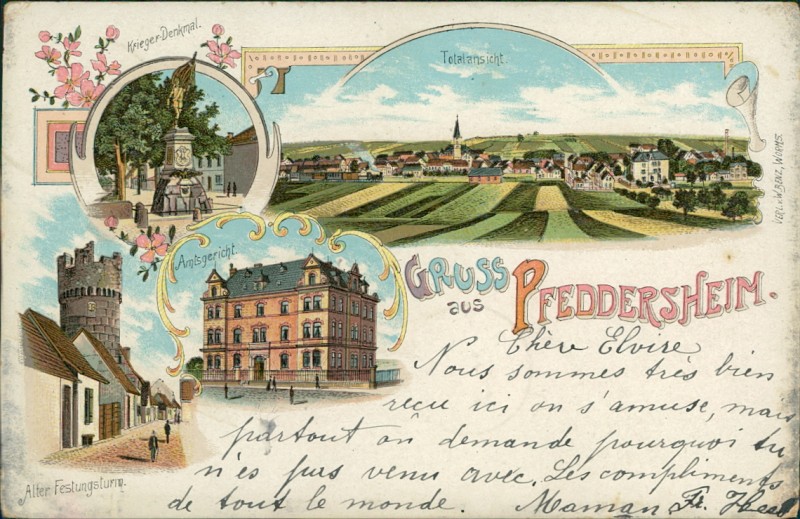 Krieger-Denkmal.
Totalansicht.
VERL. v. W. BENZ, WORMS.
Amtsgericht.
GRUSS
aus
PFEDDERSHEIM.
Alter Festungsturm.
Chère Elvire
Nous sommes très bien
reçu ici on s'amuse, mais
partout on demande pourquoi tu
n'es pas venu avec. Les compliments
de tout le monde. Maman